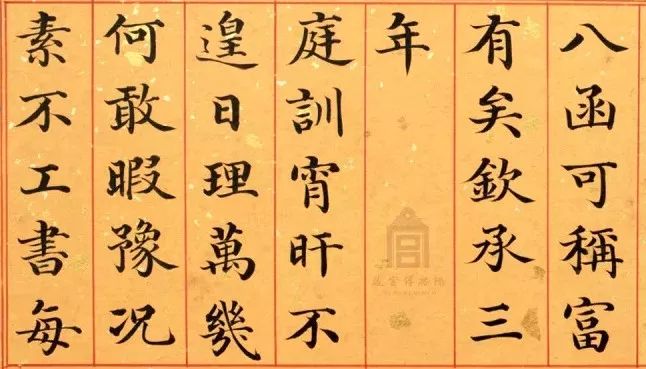 八函可稱富
有矣欽承三
年
庭訓宵旰不
遑日理萬幾
何敢暇豫况
素不工書每